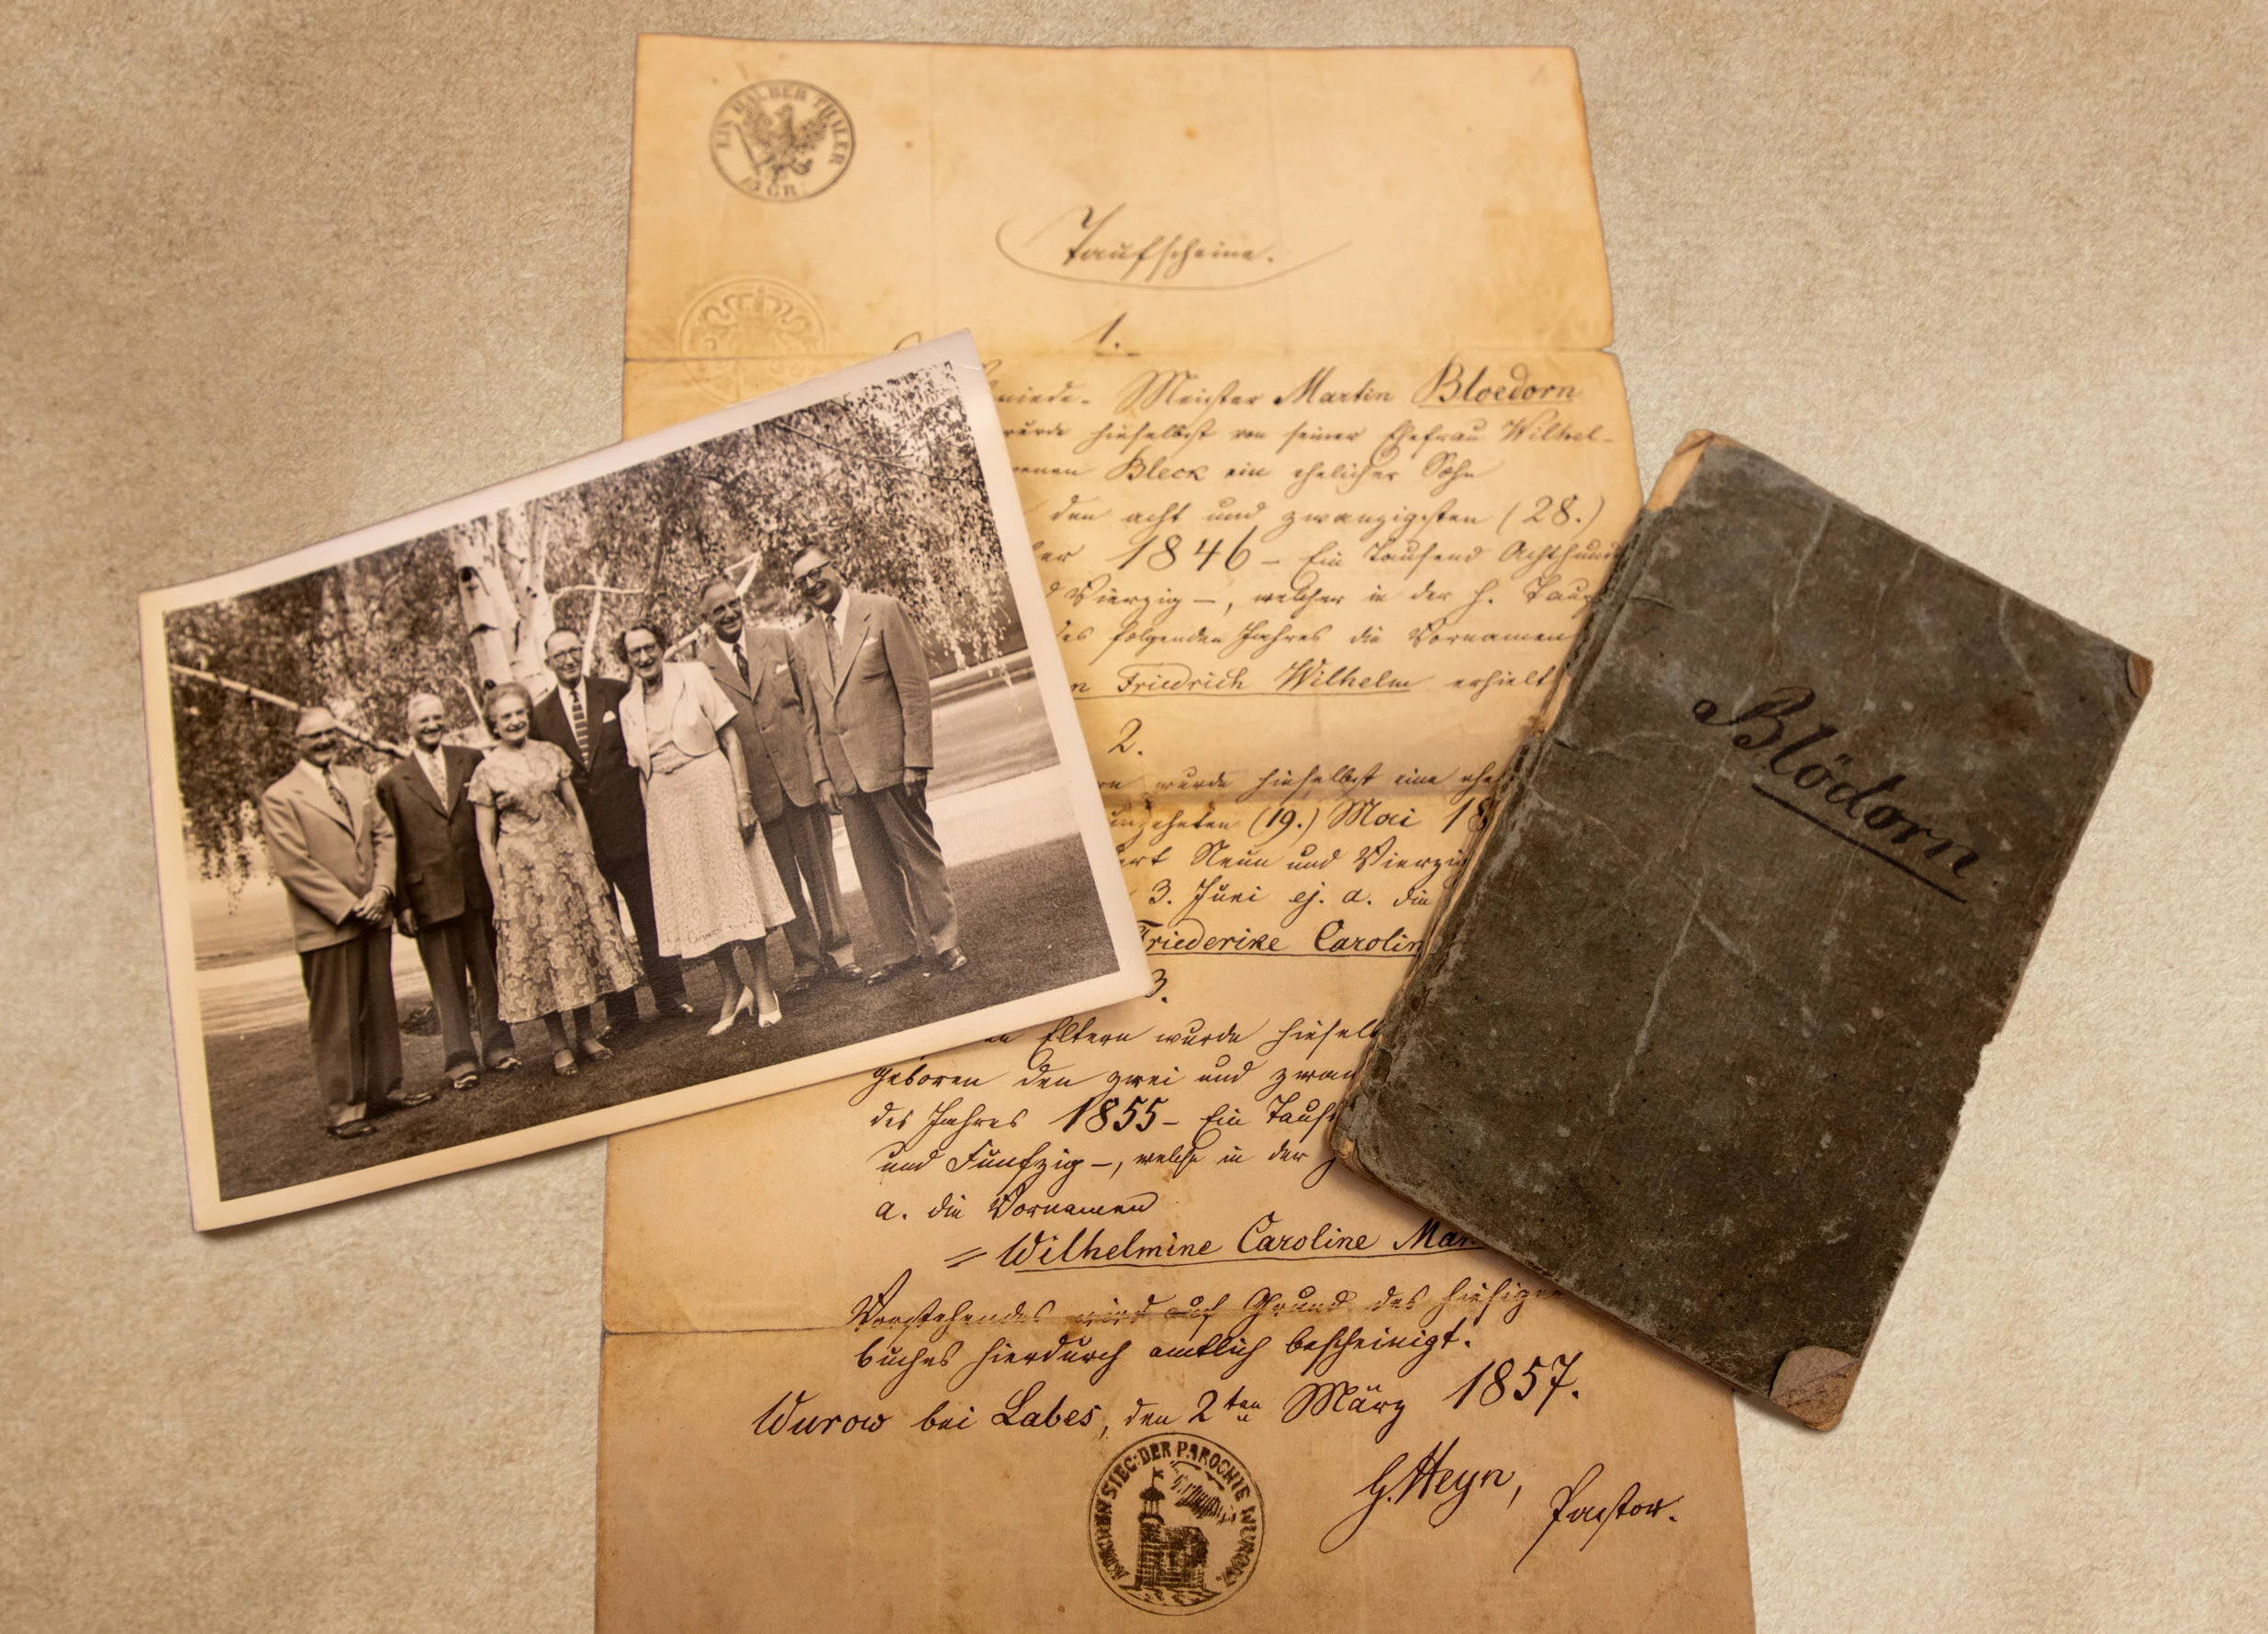 EIN HALBER THALER
15 GR.
Taufscheine.
1.
Meister Martin Bloedorn
wurde hieselbst von seiner Ehefrau Wilhel-
Bleck ein ehelicher Sohn
den acht und zwanzigsten (28.)
1846 – Ein Tausend Achthund
Vierzig –, welcher in der h. Tauf
des folgenden Jahres die Vornamen
Friedrich Wilhelm erhielt
2.
wurde hieselbst eine ehe
(19.) Mai 18
Neun und Vierzig
3. Juni ej. a. die
Friederike Carolin
3.
Eltern wurde hieselb
geboren den zwei und zwan
des Jahres 1855 – Ein Taus
und Fünfzig –, welche in der
a. die Vornamen
= Wilhelmine Caroline Mar
Vorstehendes wird auf Grund des hiesigen
buches hierdurch amtlich bescheinigt.
Wurow bei Labes, den 2ten März 1857.
G. Heyn, Pastor.
KIRCHENSIEG: DER PAROCHIE WUROW
Blödorn